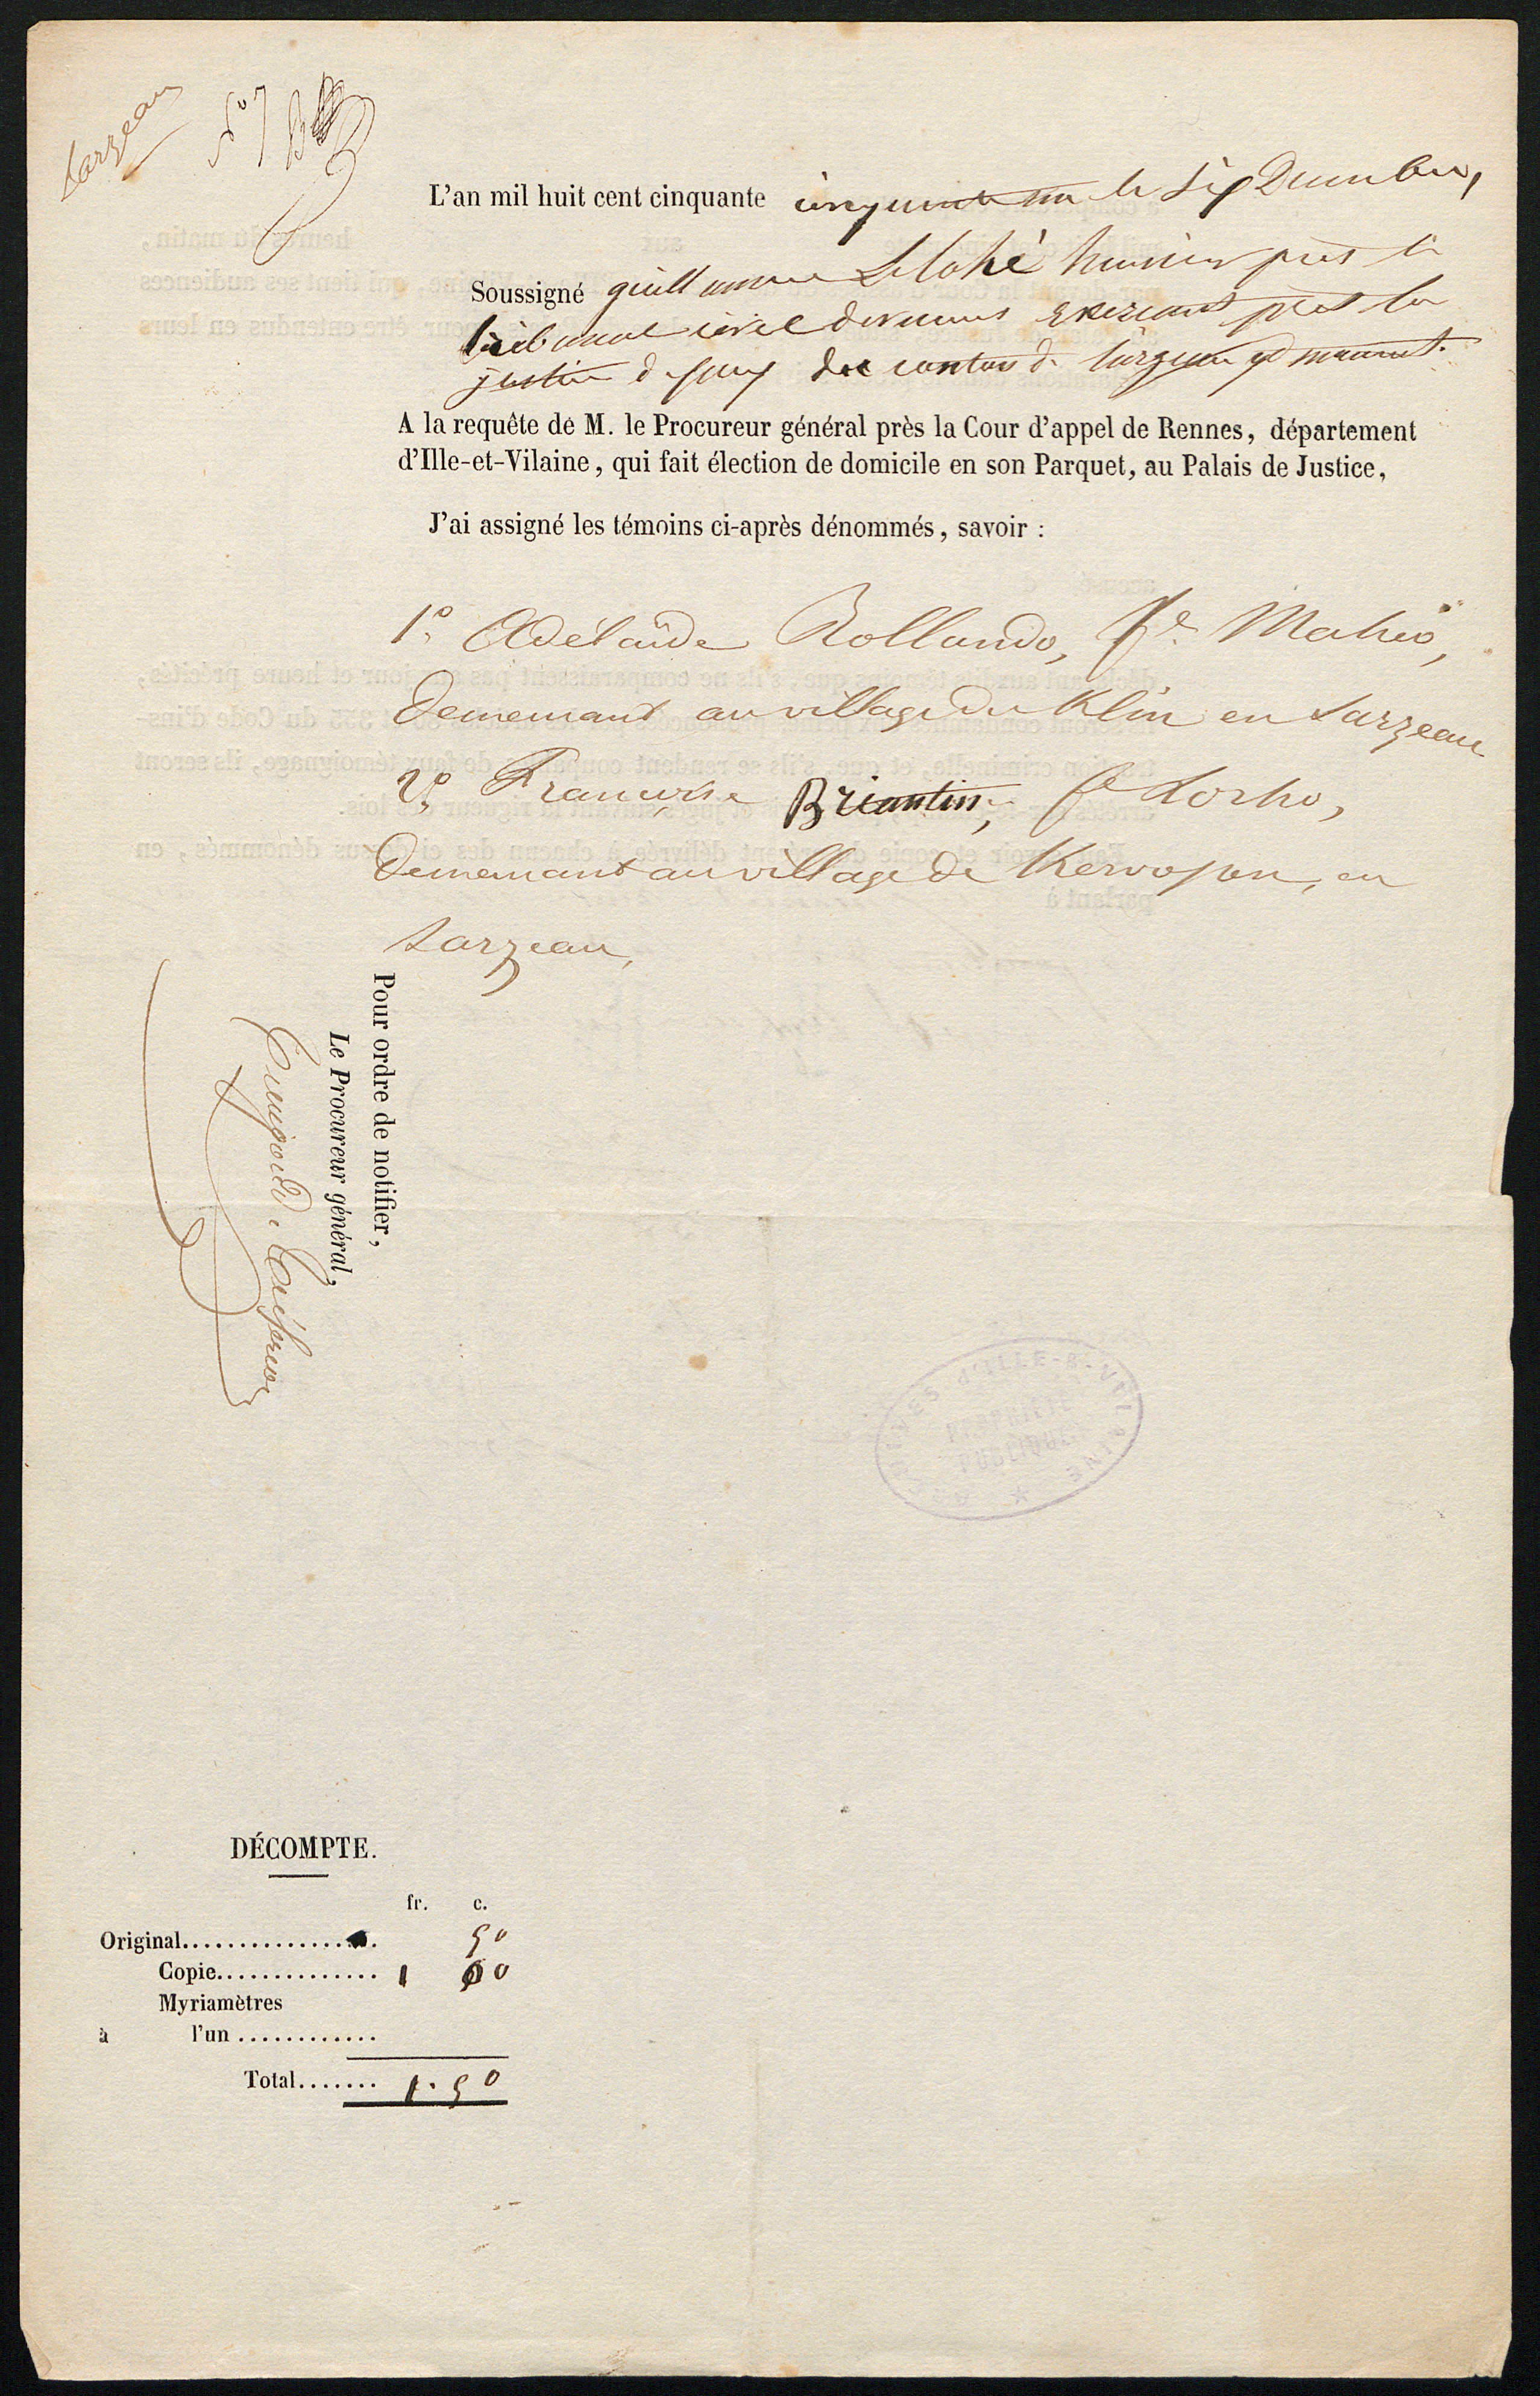 Sarzeau
N° 7
L'an mil huit cent cinquante cinquante un le six Decembre,
Soussigné guillaume Lelohé huissier près le
tribunal civil de vannes exerçant près la
justice de paix du canton de Sarzeau y demeurant.
A la requête de M. le Procureur général près la Cour d'appel de Rennes, département
d'Ille-et-Vilaine, qui fait élection de domicile en son Parquet, au Palais de Justice,
J'ai assigné les témoins ci-après dénommés, savoir :
1° Adélaïde Rollando, fe Mahéo,
demeurant au village du Klin en Sarzeau
2° Francoise Briantin, fe Lorho,
demeurant au village de Kervosen, en
Sarzeau,
Pour ordre de notifier,
Le Procureur général,
ARCHIVES d'ILLE-&-VILAINE
PROPRIÉTÉ
PUBLIQUE
DÉCOMPTE.
fr. c.
Original................. 50
Copie............... 1 00
Myriamètres
à l'un .............
Total....... 1.50